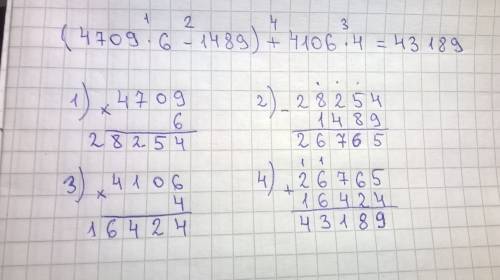 1 2 4 3
(4709 · 6 - 1489) + 4106 · 4 = 43189
1) × 4709
6
28254
2) - 28254
1489
26765
3) × 4106
4
16424
4) + 26765
16424
43189